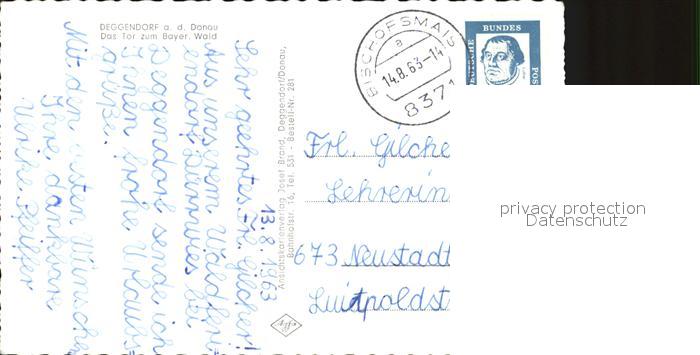 DEGGENDORF a. d. Donau
Das Tor zum Bayer. Wald
13.8.1963
Sehr geehrtes Frl. Gilcher!
Aus unserem Waldferi-
endorf bei
Deggendorf sende ich
Ihnen frohe Urlaubs-
grüße.
Mit den besten Wünschen
Ihre dankbare
Ulrike Pfeiffer
Ansichtskartenverlag Josef Brand, Deggendorf/Donau,
Bahnhofstr. 16, Tel. 531 - Bestell-Nr. 281
Agfa
BISCHOFSMAIS
a
14.8.63-14
8371
DEUTSCHE
BUNDES
POS
Frl. Gilche
Lehrerin
673 Neustadt
Luitpoldst
privacy protection
Datenschutz